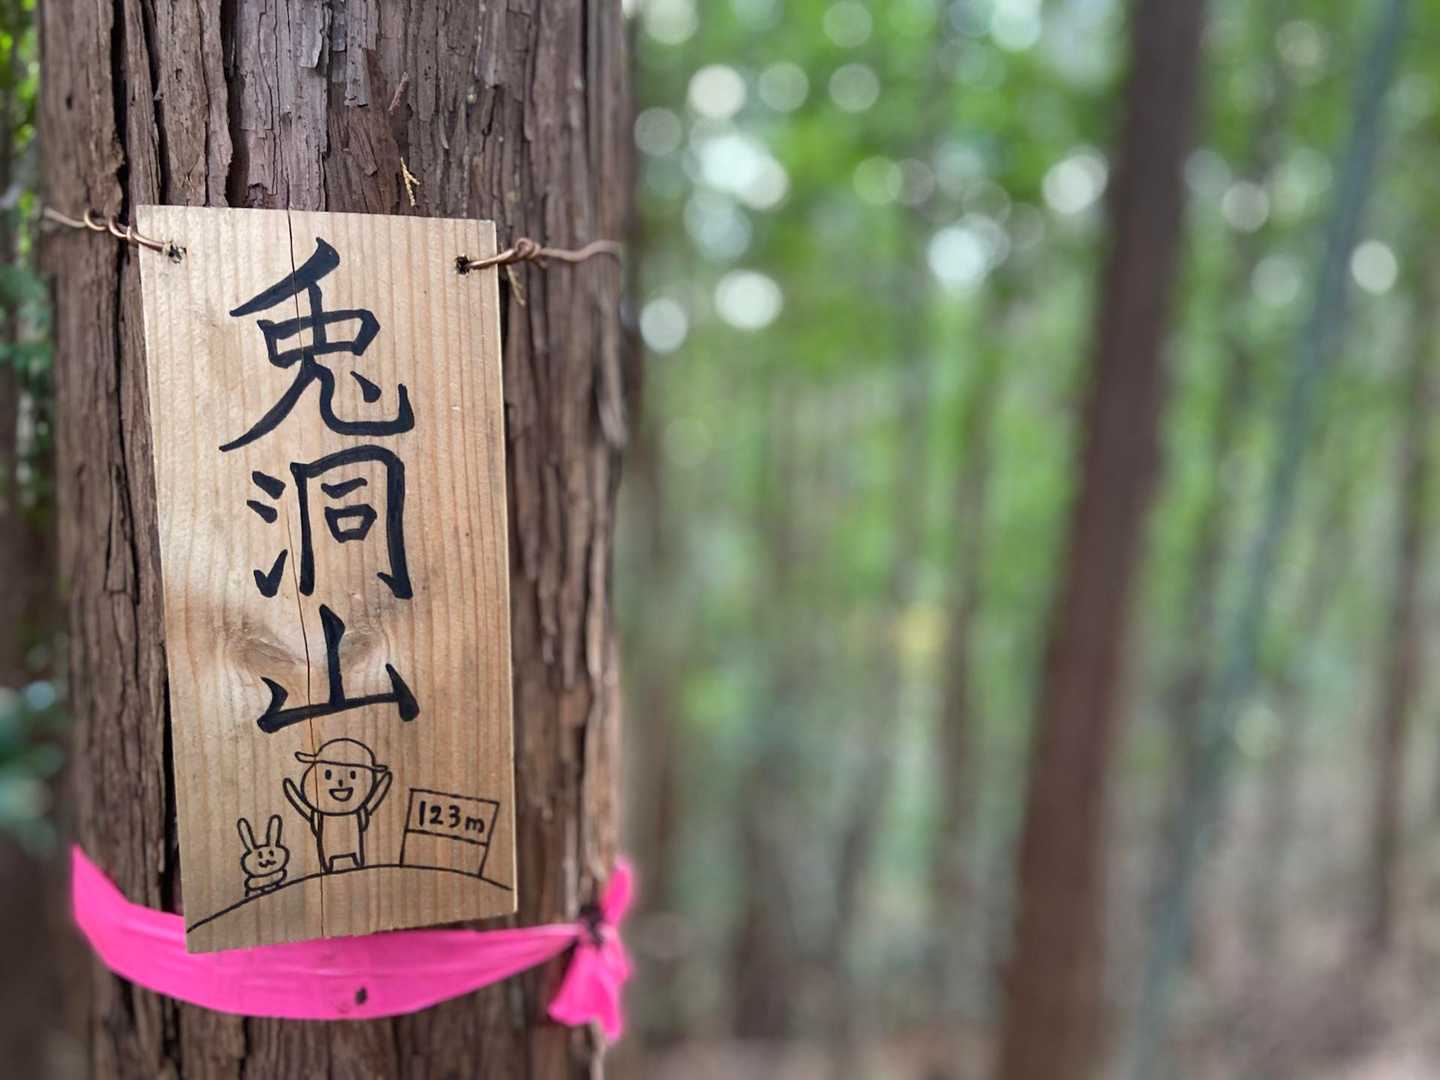 兎洞山
123m